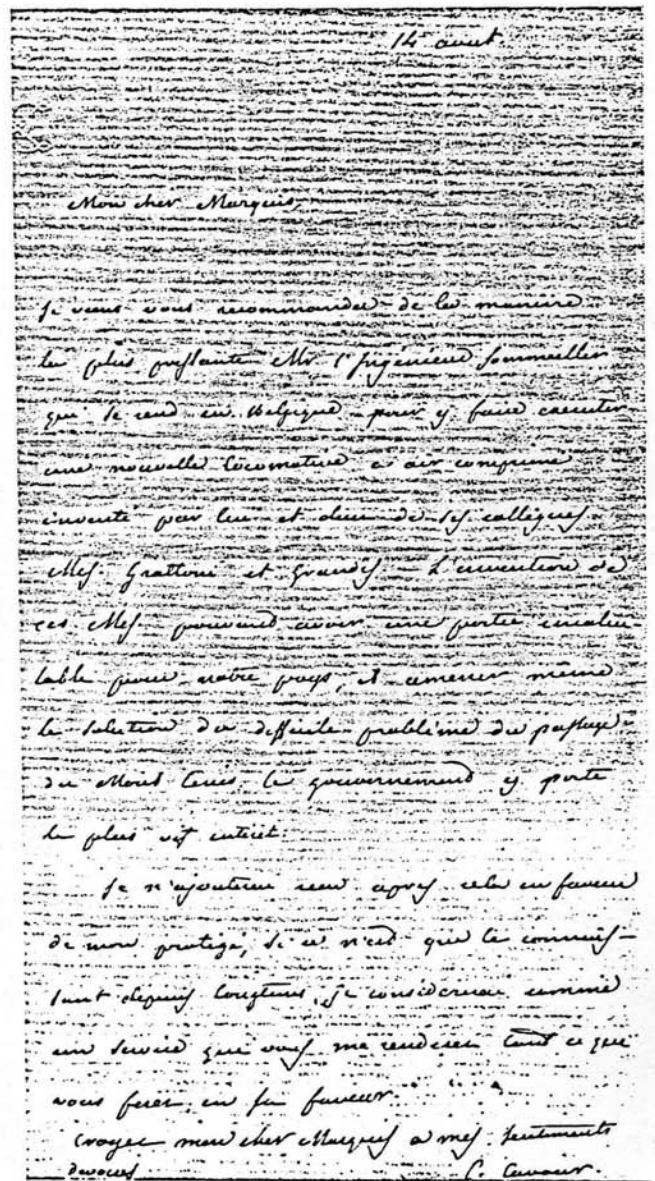 14 aout
Mon cher Marquis,
Je veux vous recommander de la maniere
la plus pressante Mr. l'Ingénieur Sommeiller
qui se rend en Belgique pour y faire executer
une nouvelle locomotive a air comprimé
inventé par lui et deux de ses collègues
MMs. Grattoni et Grandis – L'invention de
ces MMs. pouvant avoir une portée incalcu
lable pour notre pays, et amener meme
la solution du difficile problème du passage
du Mont Cenis le gouvernement y porte
le plus vif intéret.
Je n'ajouterai rien après cela en faveur
de mon protégé, si ce n'est que le connais-
sant depuis longtems, je considererai comme
un service que vous me rendriez tout ce que
vous ferez en sa faveur.
Croyez mon cher Marquis a mes sentiments
devoués C. Cavour.